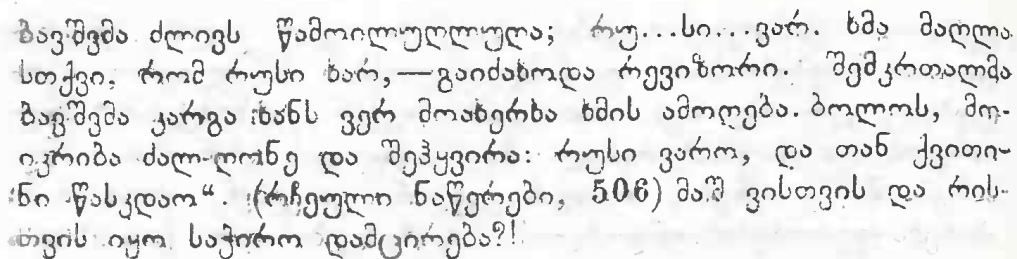 ბავშვმა ძლივს წამოილუღლუღა; რუ...სი...ვარ. ხმა მაღლა
სთქვი, რომ რუსი ხარ,—გაიძახოდა რევიზორი. შემკრთალმა
ბავშვმა კარგა ხანს ვერ მოახერხა ხმის ამოღება. ბოლოს, მო-
იკრიბა ძალ-ღონე და შეჰყვირა: რუსი ვარო, და თან ქვითი-
ნი წასკდაო“. (რჩეული ნაწერები, 506) მაშ ვისთვის და რის-
თვის იყო საჭირო დამცირება?!